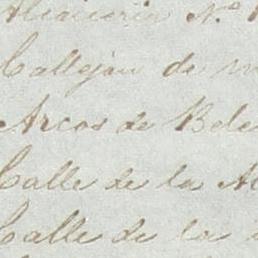 Nº
Callejon de
Arcos de Bele
Calle de la
Calle de la